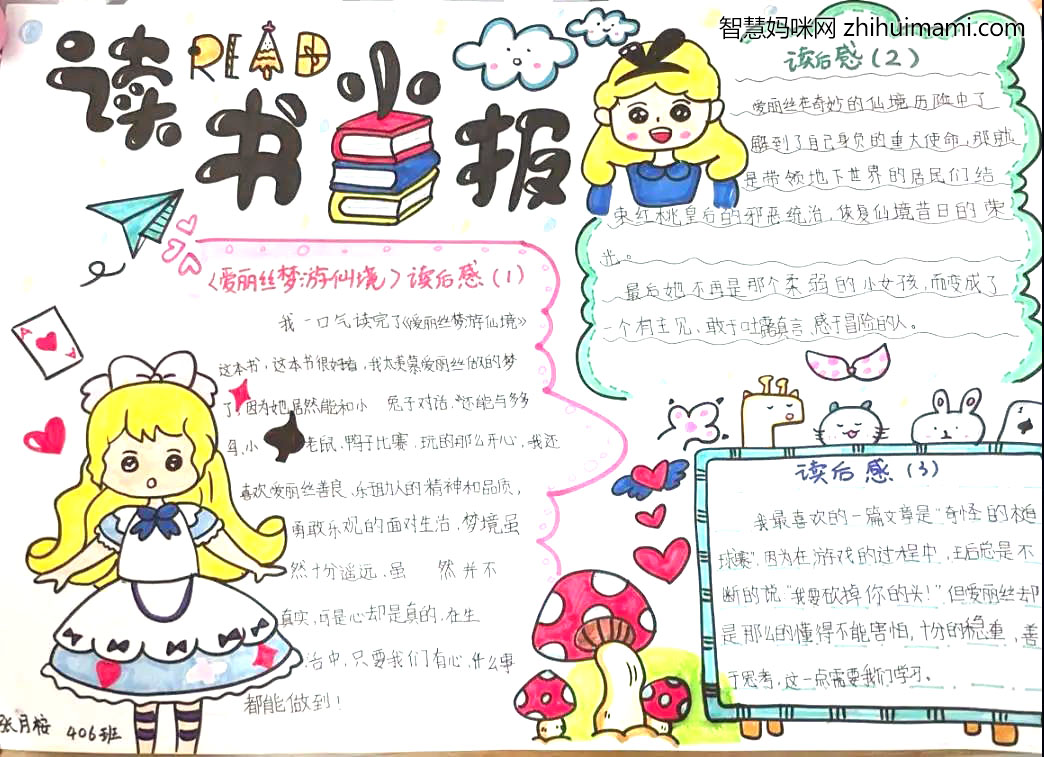 智慧妈咪网 zhihuimami.com
读书小报
READ
《爱丽丝梦游仙境》读后感(1)
我一口气读完了《爱丽丝梦游仙境》
这本书，这本书很好看，我太羡慕爱丽丝做的梦
了，因为她居然能和小 兔子对话，还能与多多
鸟，小 老鼠，鸭子比赛，玩的那么开心，我还
喜欢爱丽丝善良、乐助人的精神和品质，
勇敢乐观的面对生治，梦境虽
然十分遥远，虽 然并不
真实，可是心却是真的，在生
治中，只要我们有心，什么事
都能做到！
A
A
读后感(2)
爱丽丝在奇妙的仙境历险中了
解到了自己身负的重大使命，那就
是带领地下世界的居民们结
束红桃皇后的邪恶统治，恢复仙境昔日的荣
光。
最后她不再是那个柔弱的小女孩，而变成了
一个有主见，敢于吐露真言，感于冒险的人。
读后感(3)
我最喜欢的一篇文章是“奇怪的槌
球赛”，因为在游戏的过程中，王后总是不
断的说“我要砍掉你的头！”但爱丽丝却
是那么的懂得不能害怕，十分的稳重，善
于思考，这一点需要我们学习。
张月桉 406班